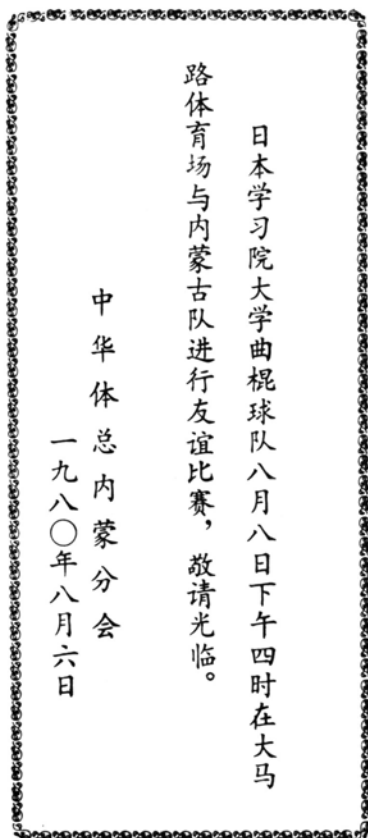 日本学习院大学曲棍球队八月八日下午四时在大马
路体育场与内蒙古队进行友谊比赛，敬请光临。
中华体总内蒙分会
一九八〇年八月六日